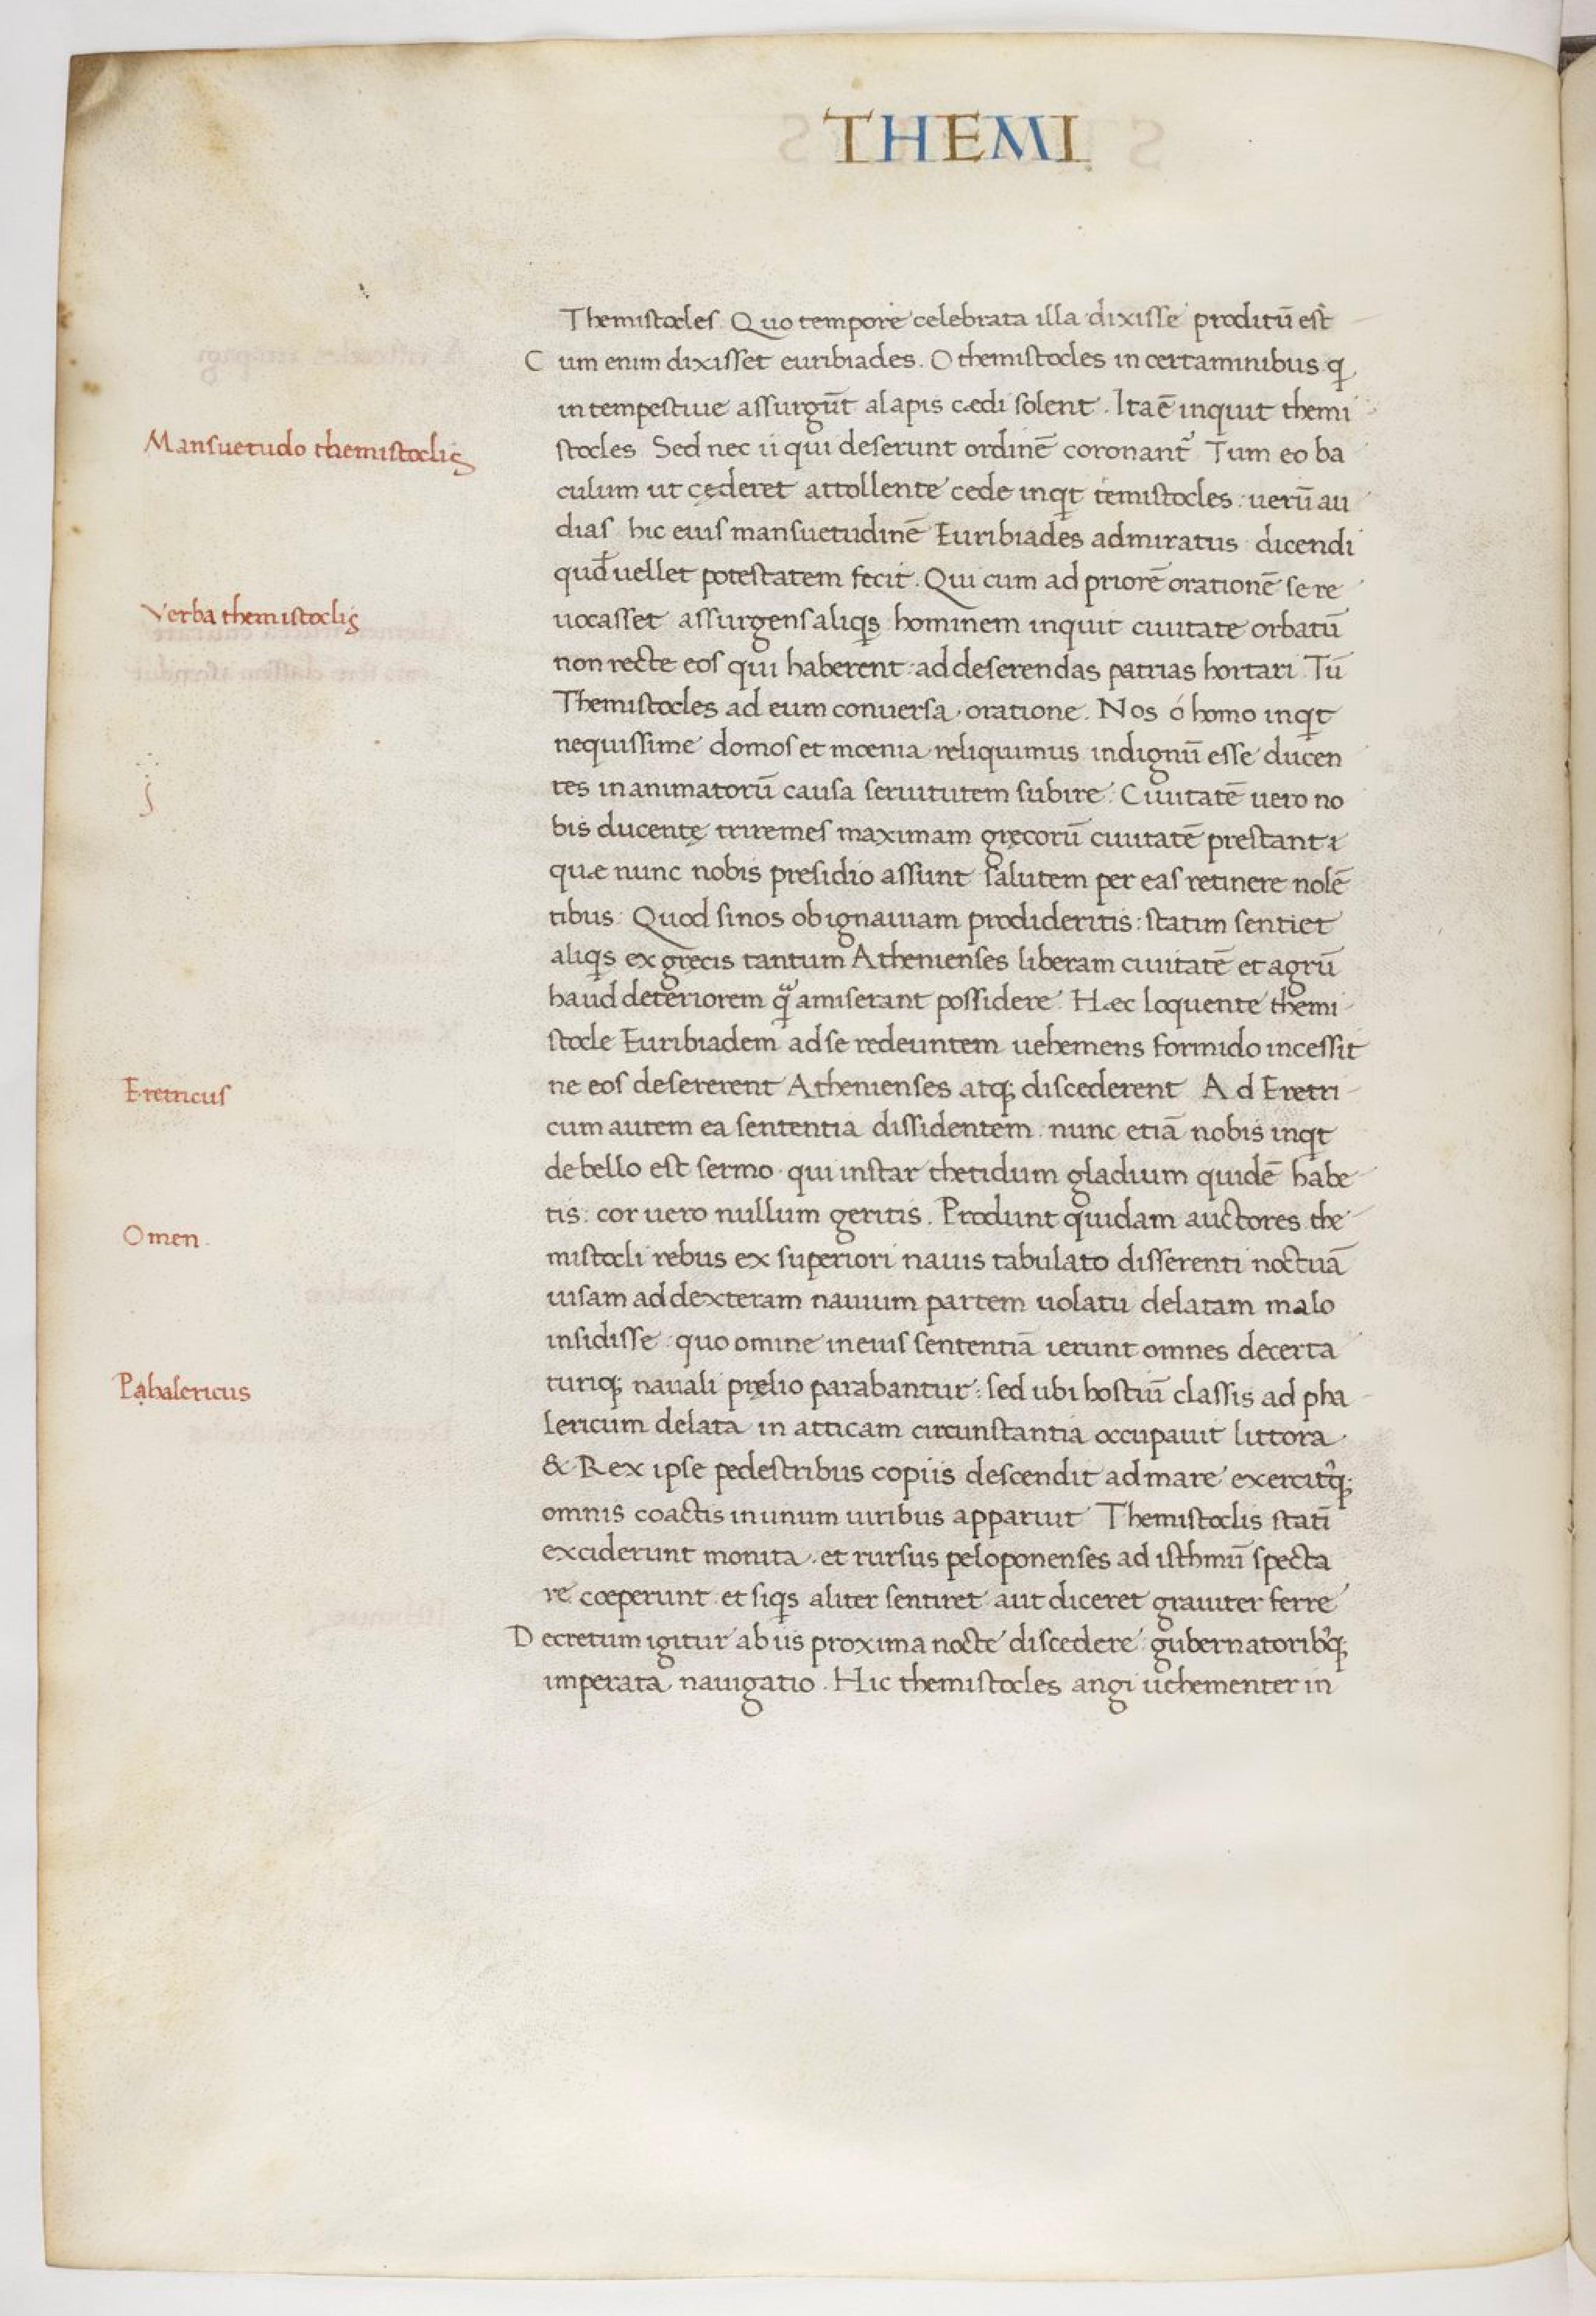 THEMI
Themistocles. Quo tempore celebrata illa dixisse proditū est
Cum enim dixisset euribiades. O themistocles in certaminibus q
intempestiue assurgūt alapis cædi solent. Ita ē inquit themi
Mansuetudo themistoclis
stocles Sed nec ii qui deserunt ordinē coronant᷑ Tum eo ba
culum ut cęderet attollente cede inqt temistocles: uerū au
dias hic eius mansuetudinē Euribiades admiratus dicendi
qud̄ uellet potestatem fecit. Qui cum ad priorē orationē se re
Verba themistoclis
uocasset assurgens aliqs hominem inquit ciuitate orbatū
non recte eos qui haberent ad deserendas patrias hortari Tū
Themistocles ad eum conuersa oratione. Nos ó homo inqt
nequissime domos et mœnia reliquimus indignū esse ducen
tes inanimatorū causa seruitutem subire. Ciuitatē uero no
bis ducentę triremes maximam gręcorū ciuitatē prestant
quæ nunc nobis presidio assunt salutem per eas retinere nolē
tibus. Quod si nos ob ignauiam prodideritis: statim sentiet
aliqs ex gręcis tantum Athenienses liberam ciuitatē et agrū
haud deteriorem qᷓ amiserant possidere. Hæc loquente themi
stocle Euribiadem ad se redeuntem uehemens formido incessit
Eretricus
ne eos desererent Athenienses atq; discederent Ad Eretri
cum autem ea sententia dissidentem nunc etiā nobis inqt
de bello est sermo qui instar thetidum gladium quidē habe
tis: cor uero nullum geritis. Produnt quidam auctores the
Omen.
mistocli rebus ex superiori nauis tabulato disserenti noctuā
uisam ad dexteram nauium partem uolatu delatam malo
insidisse quo omine in eius sententiā ierunt omnes decerta
Pahalericus
turiq; nauali pręlio parabantur: sed ubi hostiū classis ad pha
lericum delata in atticam circunstantia occupauit littora
& Rex ipse pedestribus copiis descendit ad mare exercit᷒q;
omnis coactis in unum uiribus apparuit Themistoclis statī
exciderunt monita et rursus peloponenses ad isthmū specta
re cœperunt et siqs aliter sentiret aut diceret grauiter ferre
Decretum igitur ab iis proxima nocte discedere gubernatorib᷒q;
imperata nauigatio. Hic themistocles angi uehementer in